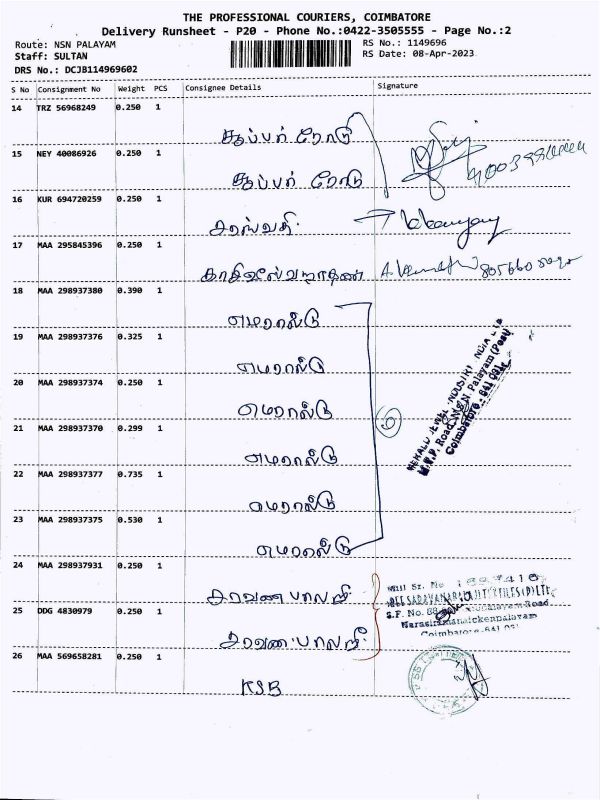 THE PROFESSIONAL COURIERS, COIMBATORE
Delivery Runsheet - P20 - Phone No.:0422-3505555 - Page No.:2
Route: NSN PALAYAM
RS No.: 1149696
Staff: SULTAN
RS Date: 08-Apr-2023
DRS No.: DCJB114969602
S No Consignment No Weight PCS Consignee Details Signature
14 TRZ 56968249 0.250 1
சூப்பர் ரோடு
15 NEY 40086926 0.250 1
சூப்பர் ரோடு
16 KUR 694720259 0.250 1
சரஸ்வதி
17 MAA 295845396 0.250 1
காசிவிஸ்வநாதன்
18 MAA 298937380 0.390 1
எமரால்டு
19 MAA 298937376 0.325 1
எமரால்டு
20 MAA 298937374 0.250 1
எமரால்டு
21 MAA 298937370 0.299 1
எமரால்டு
22 MAA 298937377 0.735 1
எமரால்டு
23 MAA 298937375 0.530 1
எமரால்டு
24 MAA 298937931 0.250 1
சரவண பாலாஜி
25 DDG 4830979 0.250 1
சரவண பாலாஜி
26 MAA 569658281 0.250 1
KSB
6
EMERALD JEWEL INDUSTRY INDIA LTD
Palayam (Post)
Coimbatore - 641 031
Mill Sr. No
S.F. No. 88
Narasimanaickenpalayam
Coimbatore-641 031